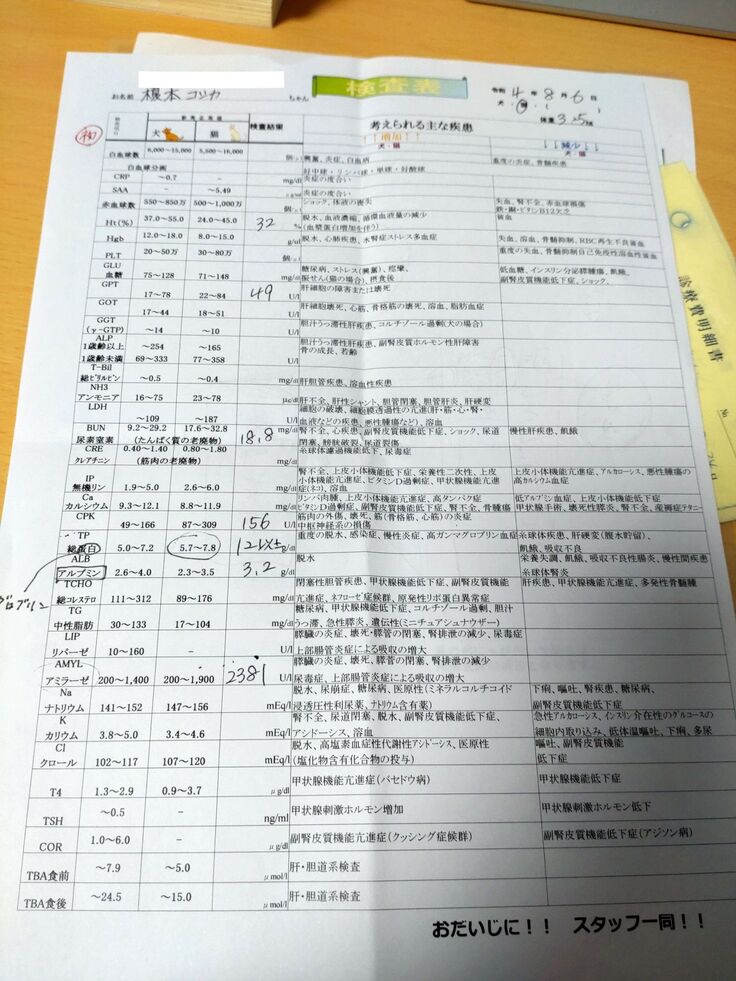 検査表
お名前 根本 コジカ ちゃん
令和 4 年 8 月 6 日
犬・猫・( )
体重 3.25 kg
初
検査項目 参考正常値 検査結果 考えられる主な疾患
犬 猫 ↑↑増加↑↑ ↓↓減少↓↓
犬・猫 犬・猫
白血球数 6,000~15,000 5,500~16,000 個 興奮、炎症、白血病 重度の炎症、骨髄疾患
白血球分画 好中球・リンパ球・単球・好酸球
CRP ~0.7 - mg/dl 炎症の度合い
SAA - ~5.49 炎症の度合い
赤血球数 550~850万 500~1,000万 個 ショック、体液の喪失 失血、腎不全、赤血球損傷
鉄・銅・ビタミンB12欠乏
Ht(%) 37.0~55.0 24.0~45.0 32 % 脱水、血液濃縮、循環血液量の減少 貧血
(血漿蛋白増加を伴う)
Hgb 12.0~18.0 8.0~15.0 g/dl 脱水、心肺疾患、水腎症ストレス多血症 失血、溶血、骨髄抑制、RBC再生不良貧血
PLT 20~50万 30~80万 個 重度の失血、骨髄抑制自己免疫性溶血性貧血
GLU 糖尿病、ストレス(興奮)、痙攣、 低血糖、インスリン分泌膵腫瘍、飢餓、
血糖 75~128 71~148 mg/dl 振せん(猫の場合)、摂食後 副腎皮質機能低下症、ショック、
GPT 肝細胞の障害または壊死
17~78 22~84 49 U/l
GOT 肝細胞壊死、心筋、骨格筋の壊死、溶血、脂肪血症
17~44 18~51 U/l
GGT 胆汁うっ滞性肝疾患、コルチゾール過剰(犬の場合)
(γ-GTP) ~14 ~10 U/l
ALP 胆汁うっ滞性肝疾患、副腎皮質ホルモン性肝障害
1歳齢以上 ~254 ~165 骨の成長、若齢
1歳齢未満 69~333 77~358 U/l
T-Bil
総ビリルビン ~0.5 ~0.4 mg/dl 肝胆管疾患、溶血性疾患
NH3 肝不全、肝性シャント、胆管閉塞、胆管肝炎、肝硬変
アンモニア 16~75 23~78 μg/dl
LDH 細胞の破壊、細胞膜透過性の亢進(肝・筋・心・腎・
~109 ~187 U/l 血液などの疾患、悪性腫瘍など)、溶血
BUN 9.2~29.2 17.6~32.8 18.8 mg/dl 腎不全、心疾患、副腎皮質機能低下症、ショック、尿道 慢性肝疾患、飢餓
尿素窒素 (たんぱく質の老廃物) 閉塞、膀胱破裂、尿道裂傷
CRE 0.40~1.40 0.80~1.80 糸球体濾過機能低下、尿毒症
クレアチニン (筋肉の老廃物) mg/dl
IP 腎不全、上皮小体機能低下症、栄養性二次性、上皮 上皮小体機能亢進症、アルカローシス、悪性腫瘍の
無機リン 1.9~5.0 2.6~6.0 mg/dl 小体機能亢進症、ビタミンD過剰症、甲状腺機能亢進症(ネコ)、溶血 高カルシウム血症
Ca リンパ肉腫、上皮小体機能亢進症、高タンパク症 低アルブミン血症、上皮小体機能低下症
カルシウム 9.3~12.1 8.8~11.9 mg/dl ビタミンD過剰症、副腎皮質機能低下症、腎不全、骨腫瘍 甲状腺手術、壊死性膵炎、腎不全、産褥癇テタニー
CPK 筋肉の外傷、壊死、筋(骨格筋、心筋)の炎症
49~166 87~309 156 U/l 中枢神経系の損傷
TP 重度の脱水、感染症、慢性炎症、高ガンマグロブリン血症 糸球体疾患、肝硬変(腹水貯留)、
総蛋白 5.0~7.2 5.7~7.8 12以上 g/dl 飢餓、吸収不良
ALB 脱水 栄養失調、飢餓、吸収不良性腸炎、慢性肝疾患
アルブミン 2.6~4.0 2.3~3.5 3.2 g/dl 糸球体腎炎
グロブリン
TCHO 閉塞性胆管疾患、甲状腺機能低下症、副腎皮質機能 肝疾患、甲状腺機能亢進症、多発性骨髄腫
総コレステロ 111~312 89~176 mg/dl 亢進症、ネフローゼ症候群、原発性リポ蛋白異常症
TG 糖尿病、甲状腺機能低下症、コルチゾール過剰、胆汁
中性脂肪 30~133 17~104 mg/dl うっ滞、急性膵炎、遺伝性(ミニチュアシュナウザー)
LIP 膵臓の炎症、壊死・膵管の閉塞、腎排泄の減少、尿毒症
リパーゼ 10~160 - U/l 上部腸管炎症による吸収の増大
AMYL 膵臓の炎症、壊死、膵管の閉塞、腎排泄の減少
アミラーゼ 200~1,400 200~1,900 2381 U/l 尿毒症、上部腸管炎症による吸収の増大
Na 脱水、尿崩症、糖尿病、医原性(ミネラルコルチコイド 下痢、嘔吐、腎疾患、糖尿病、
ナトリウム 141~152 147~156 mEq/l 浸透圧性利尿薬、ナトリウム含有薬) 副腎皮質機能低下症
K 腎不全、尿道閉塞、脱水、副腎皮質機能低下症、 急性アルカローシス、インスリン介在性のグルコースの
カリウム 3.8~5.0 3.4~4.6 mEq/l アシドーシス、溶血 細胞内取り込み、低体温嘔吐、下痢、多尿
Cl 脱水、高塩素血症性代謝性アシドーシス、医原性 嘔吐、副腎皮質機能
クロール 102~117 107~120 mEq/l (塩化物含有化合物の投与) 低下症
T4 1.3~2.9 0.9~3.7 μg/dl 甲状腺機能亢進症(バセドウ病) 甲状腺機能低下症
TSH ~0.5 - ng/ml 甲状腺刺激ホルモン増加 甲状腺刺激ホルモン低下
COR 1.0~6.0 - μg/dl 副腎皮質機能亢進症(クッシング症候群) 副腎皮質機能低下症(アジソン病)
TBA食前 ~7.9 ~5.0 μmol/l 肝・胆道系検査
TBA食後 ~24.5 ~15.0 μmol/l 肝・胆道系検査
おだいじに!! スタッフ一同!!
診療費明細書
No.